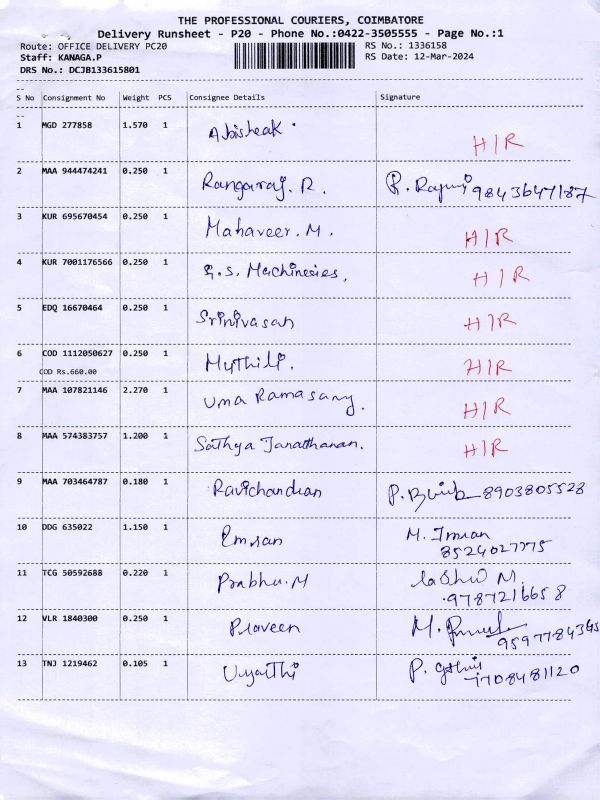 THE PROFESSIONAL COURIERS, COIMBATORE
Delivery Runsheet - P20 - Phone No.:0422-3505555 - Page No.:1
Route: OFFICE DELIVERY PC20 RS No.: 1336158
Staff: KANAGA.P RS Date: 12-Mar-2024
DRS No.: DCJB133615801
S No Consignment No Weight PCS Consignee Details Signature
1 MGD 277858 1.570 1 Abisheak. H/R
2 MAA 944474241 0.250 1 Rangaraj. R. 9843647187
3 KUR 695670454 0.250 1 Mahaveer. M. H/R
4 KUR 7001176566 0.250 1 G.S. Machineries, H/R
5 EDQ 16670464 0.250 1 Srinivasan H/R
6 COD 1112050627 0.250 1 Mythili. H/R
COD Rs.660.00
7 MAA 107821146 2.270 1 Uma Ramasamy. H/R
8 MAA 574383757 1.200 1 Sathya Janarthanan. H/R
9 MAA 703464787 0.180 1 Ravichandran 8903805528
10 DDG 635022 1.150 1 Emran M. Imran
8524027775
11 TCG 50592688 0.220 1 Prabhu. M
9787216658
12 VLR 1840300 0.250 1 Praveen M.
9597784345
13 TNJ 1219462 0.105 1 P.
7708481120